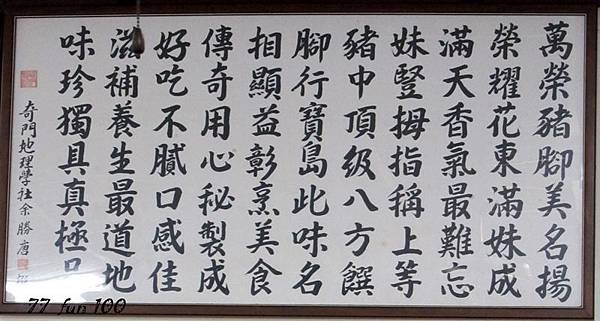 萬榮豬腳美名揚
榮耀花東滿妹成
滿天香氣最難忘
妹豎拇指稱上等
豬中頂級八方饌
腳行寶島此味名
相顯益彰烹美食
傳奇用心秘製成
好吃不膩口感佳
滋補養生最道地
味珍獨具真極品
奇門地理學社余勝唐
77 fun 100